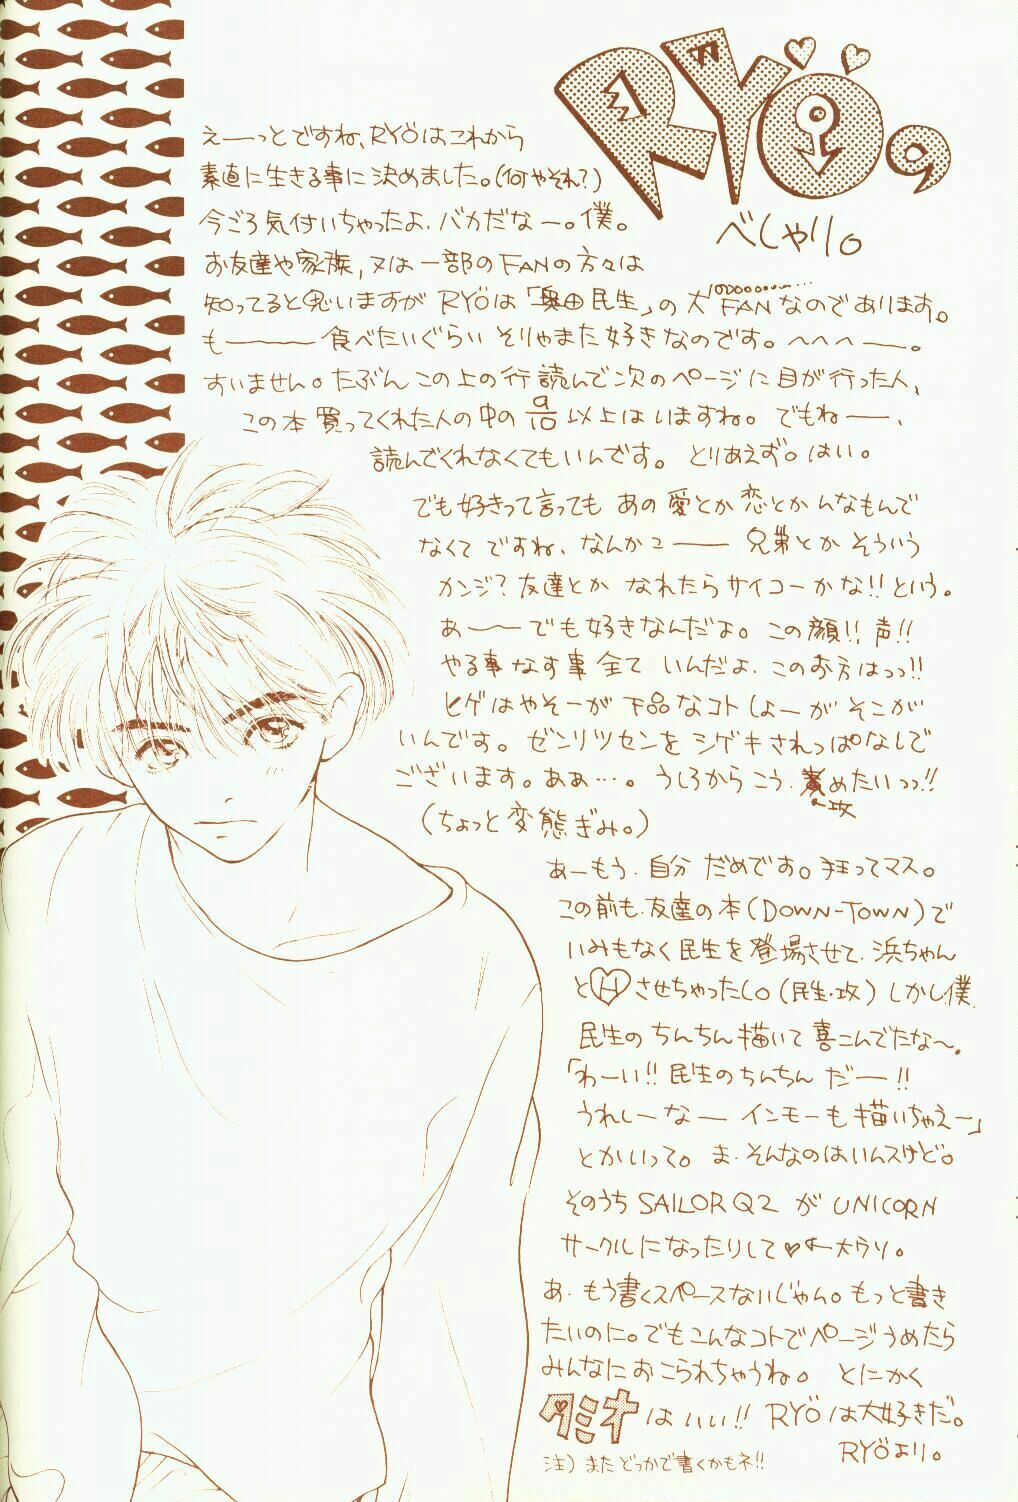 RYÖの
べしゃり。
えーっとですね、RYÖはこれから
素直に生きる事に決めました。(何やそれ?)
今ごろ気付いちゃったよ、バカだなー。僕。
お友達や家族,又は一部のFANの方々は
知ってると思いますがRYÖは「奥田民生」の大FANなのであります。
も――食べたいぐらいそりゃまた好きなのです。へへへー。
すいません。たぶんこの上の行読んで次のページに目が行った人、
この本買ってくれた人の中の9/10以上はいますね。でもねー、
読んでくれなくてもいんです。とりあえず。はい。
でも好きって言ってもあの愛とか恋とかんなもんで
なくてですね、なんかこー――兄弟とかそういう
カンジ?友達とかなれたらサイコーかな!!という。
あ――でも好きなんだよ。この顔!!声!!
やる事なす事全ていんだよ、このお方はっっ!!
ヒゲはやそーが下品なコトしよーがそこが
いんです。ゼンリツセンをシゲキされっぱなしで
ございます。あぁ…。うしろからこう、責めたいっっ!!
攻
(ちょっと変態ぎみ。)
あーもう、自分だめです。狂ってマス。
この前も、友達の本(DOWN-TOWN)で
いみもなく民生を登場させて、浜ちゃん
とHさせちゃったし。(民生・攻)しかし、僕、
民生のちんちん描いて喜こんでたな〜。
「わーい!!民生のちんちんだー!!
うれしーなーインモーも描いちゃえー」
とかいって。ま、そんなのはいんスけど。
そのうちSAILOR Q2がUNICORN
サークルになったりして♥←大ウソ。
あ、もう書くスペースないじゃん。もっと書き
たいのに。でもこんなコトでページうめたら
みんなにおこられちゃうね。とにかく
タミオはいい!!RYÖは大好きだ。
RYÖより。
注)またどっかで書くかもネ!!